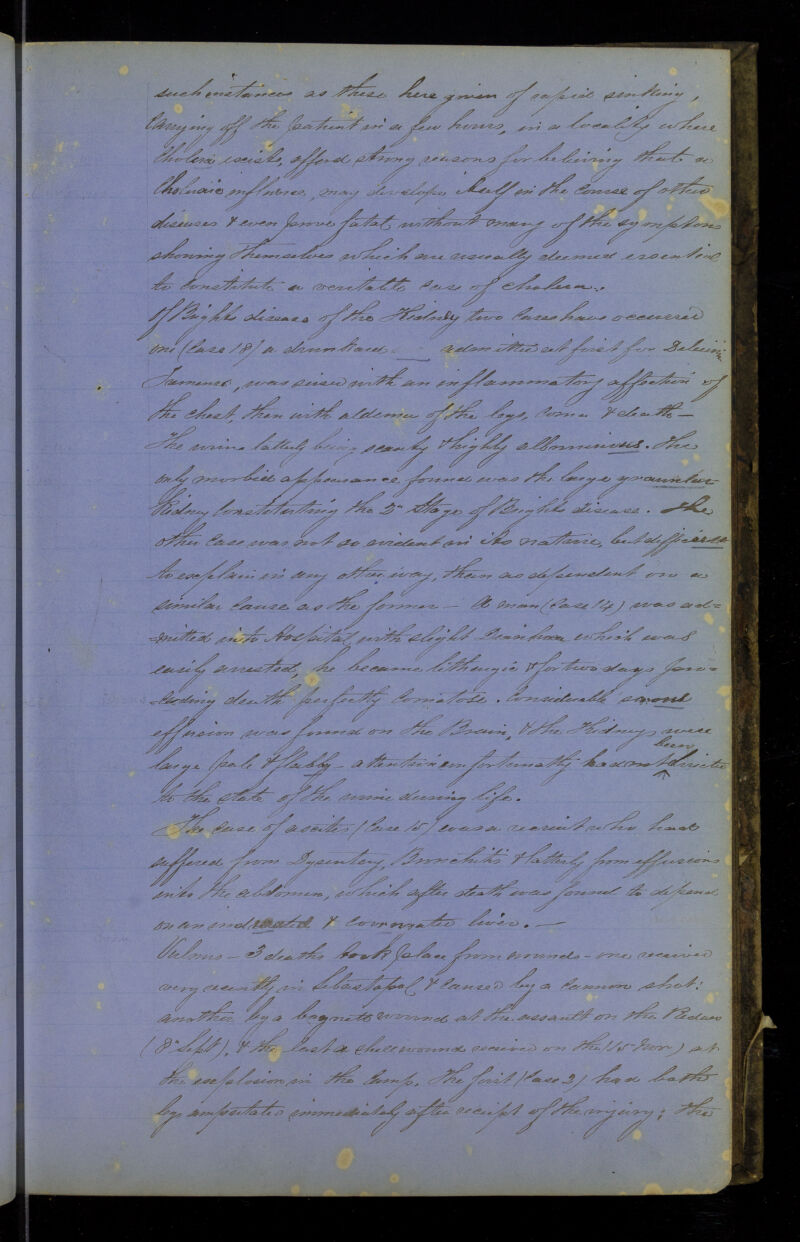 such instances as these here given of rapid sinking,
carrying off the patient in a few hours, in a locality where
Cholera exists, afford strong reasons for believing that a
Choleraic influence, may develope itself in the course of other
diseases & even prove fatal without many of the symptoms
showing themselves which are usually deemed essential
to constitute a veritable case of cholera.
Of Brights disease of the Kidney two cases have occurred
one (Case 18) a drunkard — admitted at first for Delirium
Tremens, was seised with an inflammatory affection of
the chest, then with œdema of the legs, coma & death —
The urine latterly being scanty & highly albuminous. The
only morbid appearance found was the large granular
Kidney constituting the 2d Stage of Brights disease. The
other case was not so evident in its nature, but difficult
to explain in any other way, than as dependent on a
similar cause as the former — A man (Case 14) was ad=
=mitted into Hospital with slight Diarrhœa which was
easily arrested, he became lethargic & for two days pre=
=ceding death perfectly comatose. Considerable serous
effusion was found on the Brain, & the Kidneys were
large pale & flabby — attention unfortunately had not been directed
to the state of the urine during life.
The case of ascites (Case 15) was a recruit who had
suffered from Dysentery, Bronchitis & latterly from effusions
into the abdomen, which after death was found to depend
on an indurated & liver. —
Vulnus — 3 deaths took place from wounds — one received
very recently in Sebastopol & caused by a cannon shot:
another by a bayonet wound at the assault on the Redan
(8th Sept), & the last a shell wound received on the (15 Nov) at
the explosion in the Camp. The first (Case 2) had both
legs amputated immediately after receipt of the injury; the